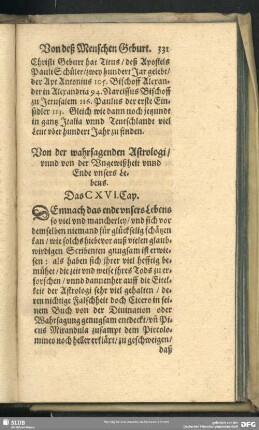 Von deß Menschen Geburt. 331
Christi Geburt hat Titus/ deß Apostels
Pauli Schüler/ zwey hundert Jar gelebt/
der Apt Antonius 105. Bischoff Alexan-
der in Alexandria 94. Narcissus Bischoff
zu Jerusalem 116. Paulus der erste Ein-
sidler 113. Gleich wie dann noch jetzunde
in gantz Italia vnnd Teutschlande viel
Leut vber hundert Jahr zu finden.
Von der wahrsagenden Astrologi/
vnnd von der Vngewißheit vnnd
Ende vnsers Le-
bens.
Das CXVI. Cap.
DEmnach das ende vnsers Lebens
so viel vnd mancherley/ vnd sich vor
demselben niemand für glückselig schätzen
kan/ wie solchs hiebevor auß vielen glaub-
wirdigen Scribenten gnugsam ist erwie-
sen: als haben sich jhrer viel hefftig be-
mühet/ die zeit vnd weise jhres Tods zu er-
forschen/ vnnd dannenher auff die Eitel-
keit der Astrologi sehr viel gehalten/ de-
ren nichtige Falschheit doch Cicero in sei-
nem Buch von der Divination oder
Wahrsagung genugsam entdeckt/ vñ Pi-
cus Mirandula zusampt dem Piccolo-
mineo noch heller erklärt/ zu geschweigen/
daß
SLUB